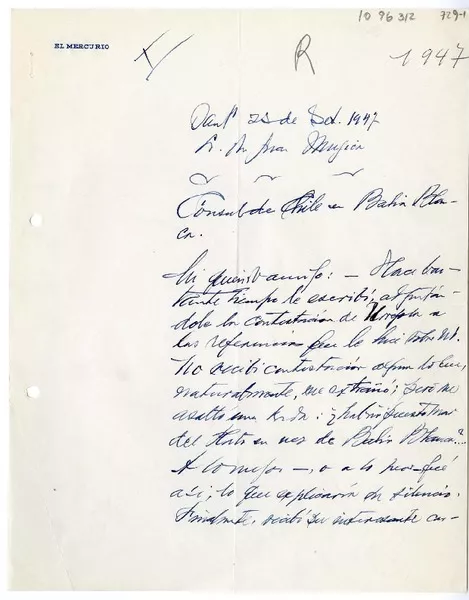 10 96 312 729-1
EL MERCURIO
R
1947
Sant° 23 de Set. 1947
S. Dn Juan Mujica
Cónsul de Chile en Bahía Blan-
ca.
Mi querido amigo: — Hace bas-
tante tiempo le escribí, adjuntán-
dole la contestación de a
las referencias que le hice sobre Ud.
No recibí contestación alguna lo que,
naturalmente, me extrañó; pero me
asaltó una duda: ¿habría puesto Mar
del Plata en vez de Bahía Blanca?...
A lo mejor —, o a lo peor fué
así; lo que explicaría su silencio.
Finalmente, recibí su interesante car-